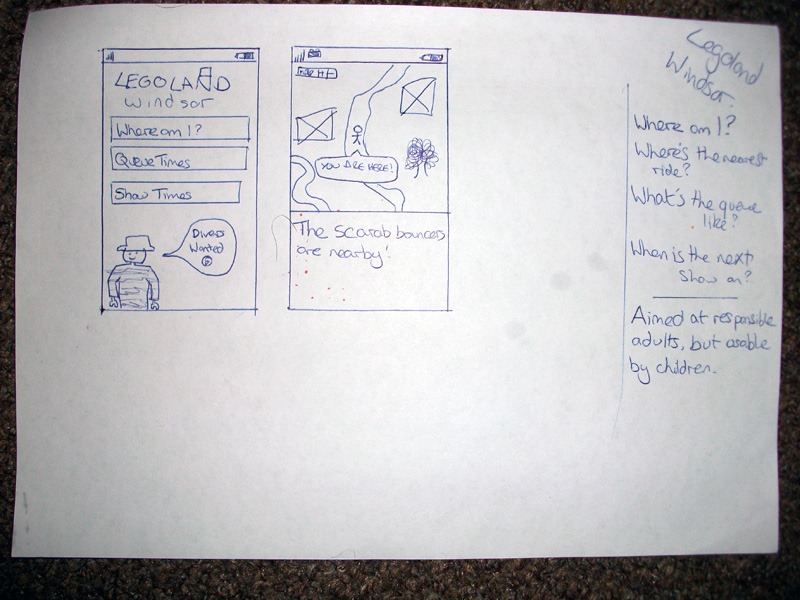 LEGOLAND
Windsor
Where am I?
Queue Times
Show Times
Divers
Wanted
YOU ARE HERE!
The Scarab bouncers
are nearby!
Legoland
Windsor.
Where am I?
Where's the nearest
ride?
What's the queue
like?
When is the next
Show on?
Aimed at responsible
adults, but usable
by children.